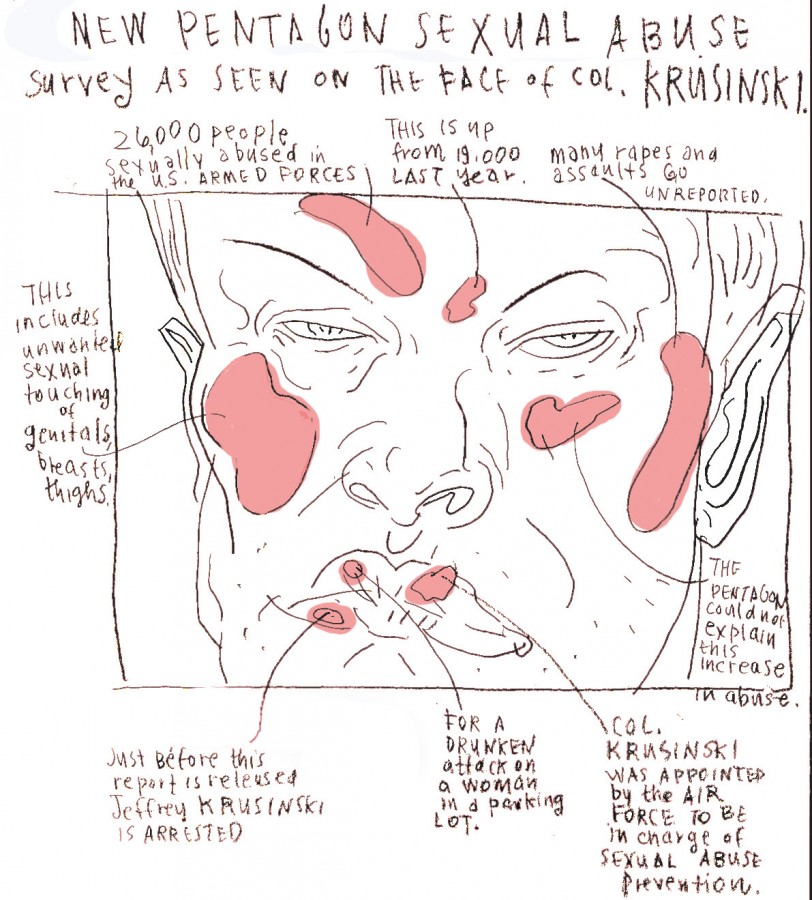 NEW PENTAGON SEXUAL ABUSE
Survey AS SEEN ON THE FACE of COL. KRUSINSKI.
26,000 people
sexually abused in
the U.S. ARMED FORCES
THIS IS UP
from 19.000
LAST year.
many rapes and
assaults GO
UNREPORTED.
THIS
includes
unwanted
sexual
touching
of
genitals,
breasts,
thighs.
THE
PENTAGON
could not
explain
this
increase
in abuse.
Just before this
report is released
Jeffrey KRUSINSKI
IS ARRESTED
FOR A
DRUNKEN
attack on
a woman
in a parking
LOT.
COL.
KRUSINSKI
WAS APPOINTED
by the AIR
FORCE TO BE
in charge of
SEXUAL ABUSE
Prevention.